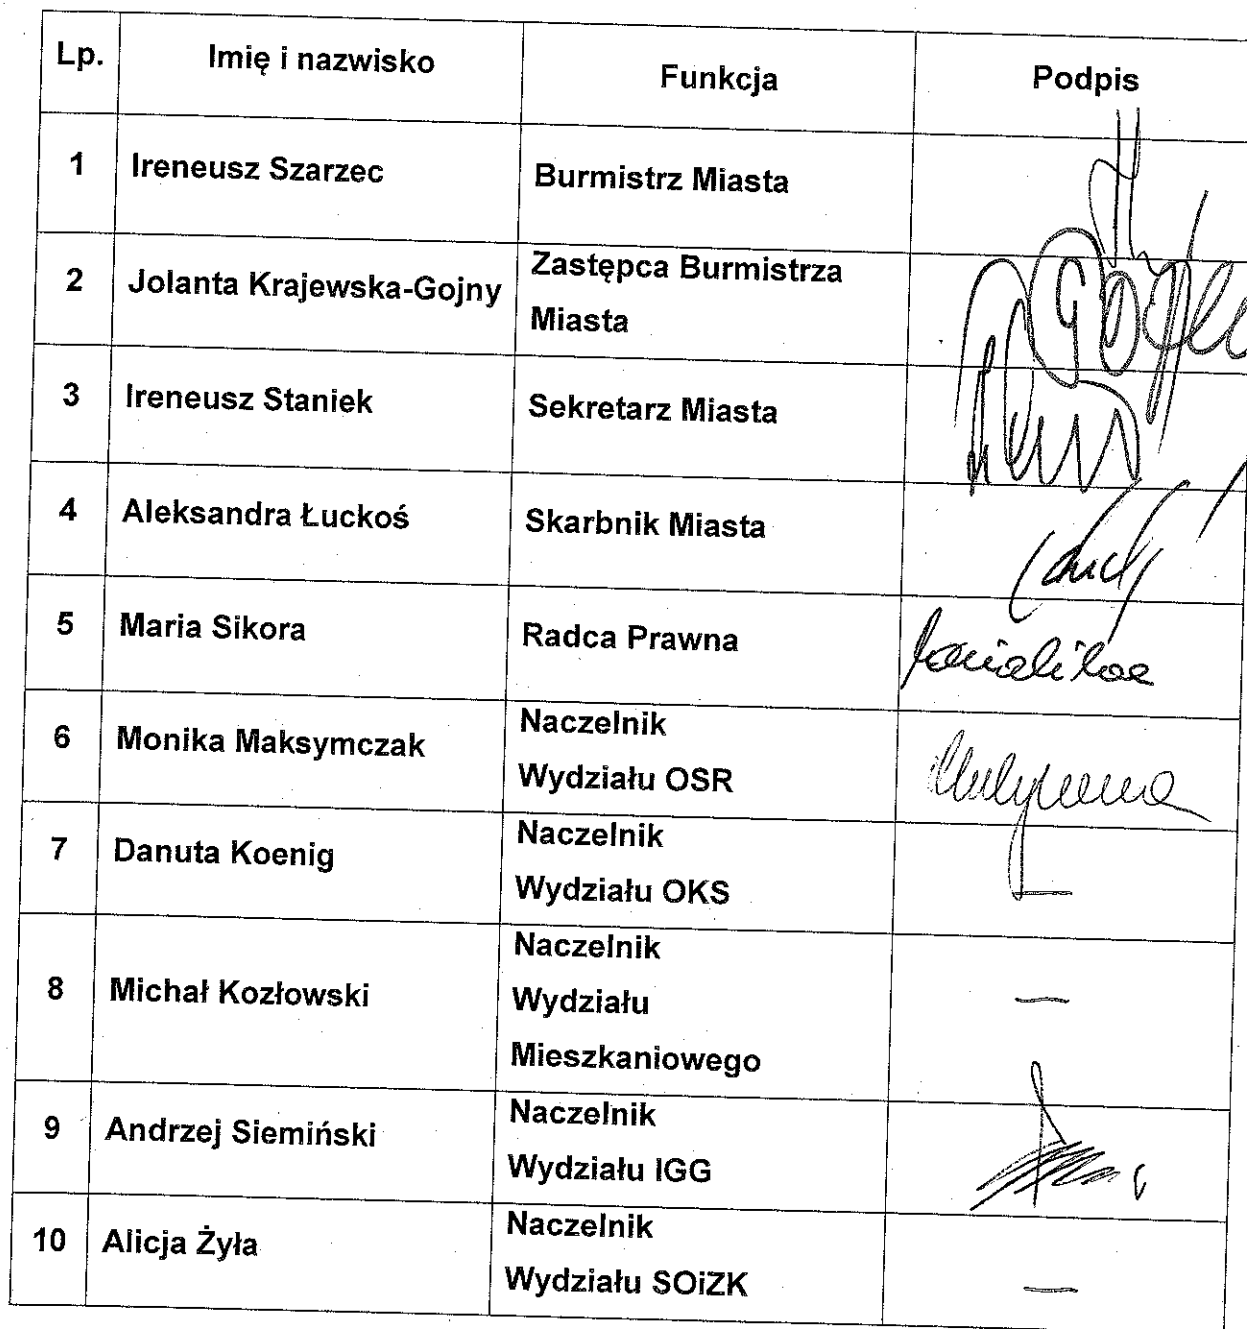 Lp. Imię i nazwisko Funkcja Podpis
1 Ireneusz Szarzec Burmistrz Miasta
2 Jolanta Krajewska-Gojny Zastępca Burmistrza
Miasta
3 Ireneusz Staniek Sekretarz Miasta
4 Aleksandra Łuckoś Skarbnik Miasta
5 Maria Sikora Radca Prawna
6 Monika Maksymczak Naczelnik
Wydziału OSR
7 Danuta Koenig Naczelnik
Wydziału OKS
—
8 Michał Kozłowski Naczelnik
Wydziału
Mieszkaniowego
—
9 Andrzej Siemiński Naczelnik
Wydziału IGG
10 Alicja Żyła Naczelnik
Wydziału SOiZK
—